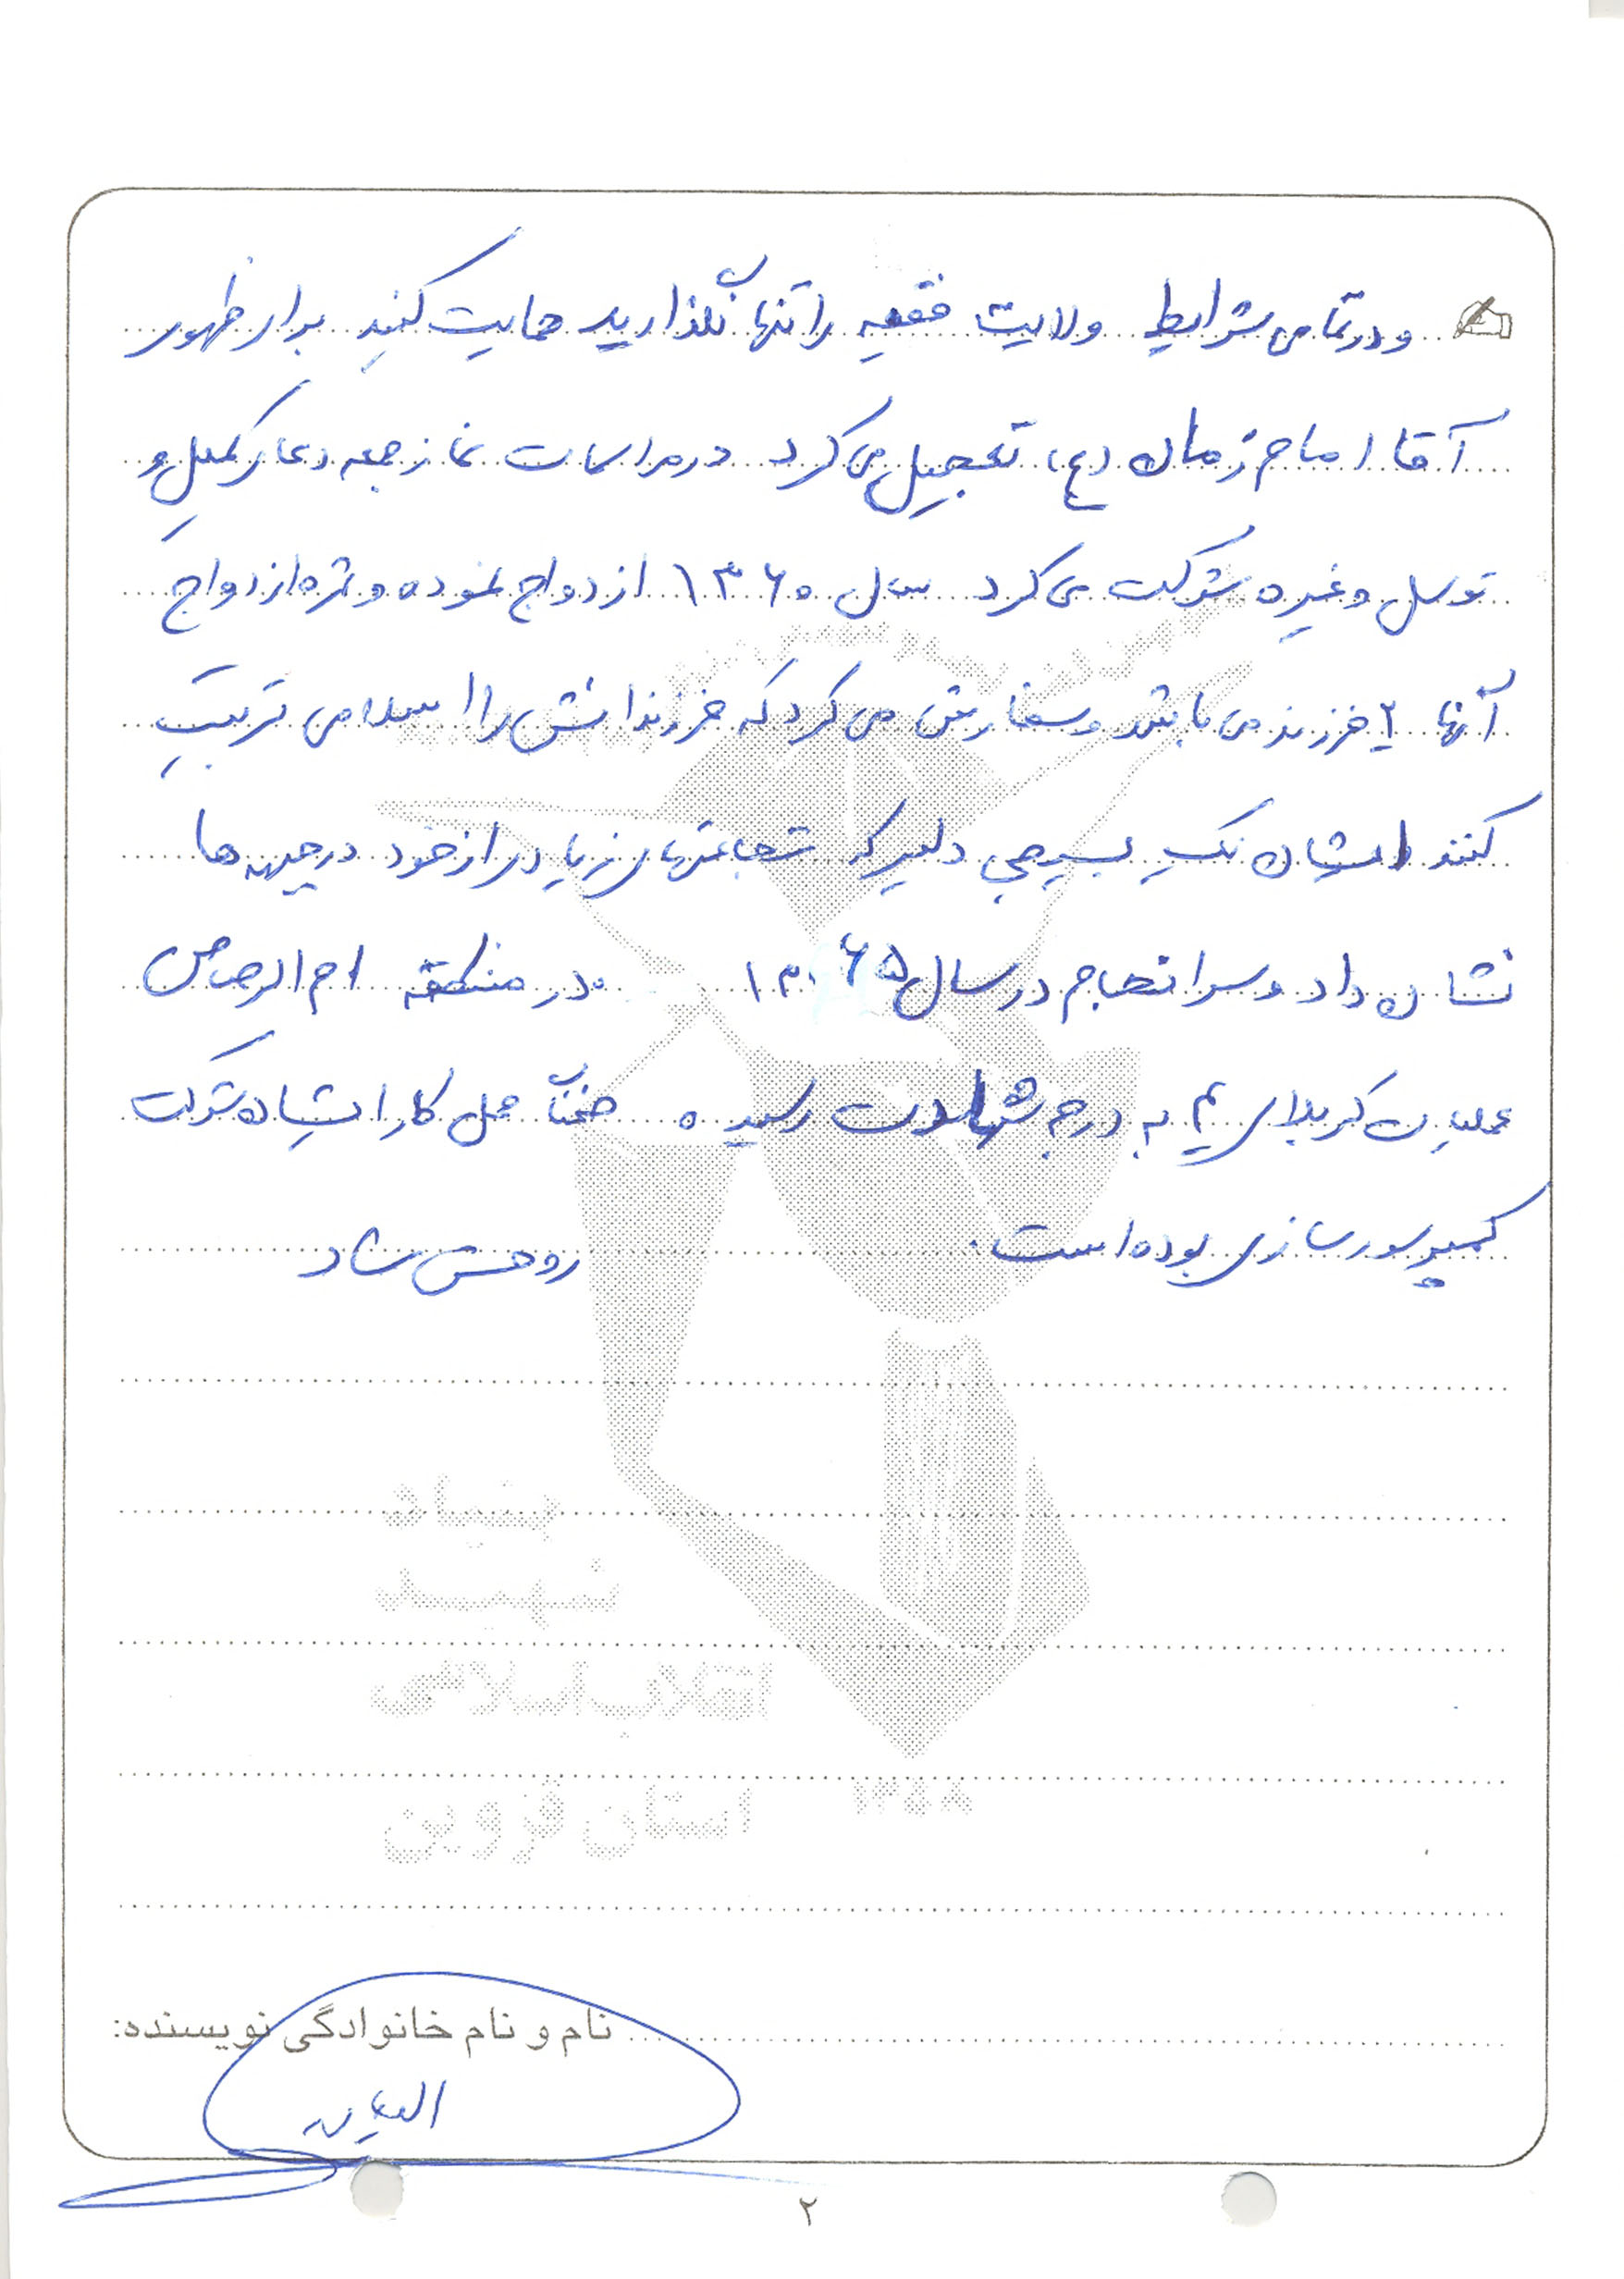 و در تمامی شرایط ولایت فقیه را تنها نگذارید حمایت کنید برای ظهور
آقا امام زمان (ع) تعجیل می کرد در مراسمات نماز جمعه دعای کمیل و
توسل و غیره شرکت می کرد سال ۱۳۶۰ ازدواج نموده و ثمره ازدواج
آنها ۲ فرزند می باشد و سفارش می کرد که فرزندانش را اسلامی تربیت
کنند ایشان یک بسیجی دلیر که شجاعتهای زیادی از خود در جبهه ها
نشان داد و سرانجام در سال ۱۳۶۵ در منطقه ام الرصاص
عملیات کربلای ۴ به درجه شهادت رسیده ضمناً محل کار ایشان شرکت
کمپرسورسازی بوده است. روحش شاد
بنیاد
شهید
انقلاب اسلامی
استان قزوین
نام و نام خانوادگی نویسنده:
۲